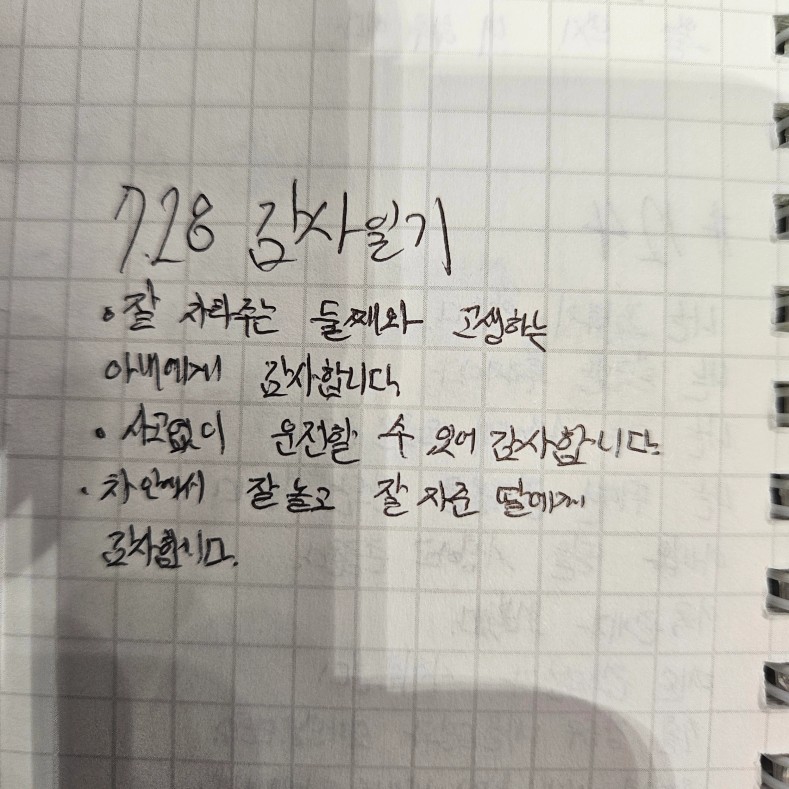 7.28 감사일기
• 잘 자라주는 둘째와 고생하는
아내에게 감사합니다
• 사고없이 운전할 수 있어 감사합니다.
• 차안에서 잘 놀고 잘 자준 딸에게
감사합니다.